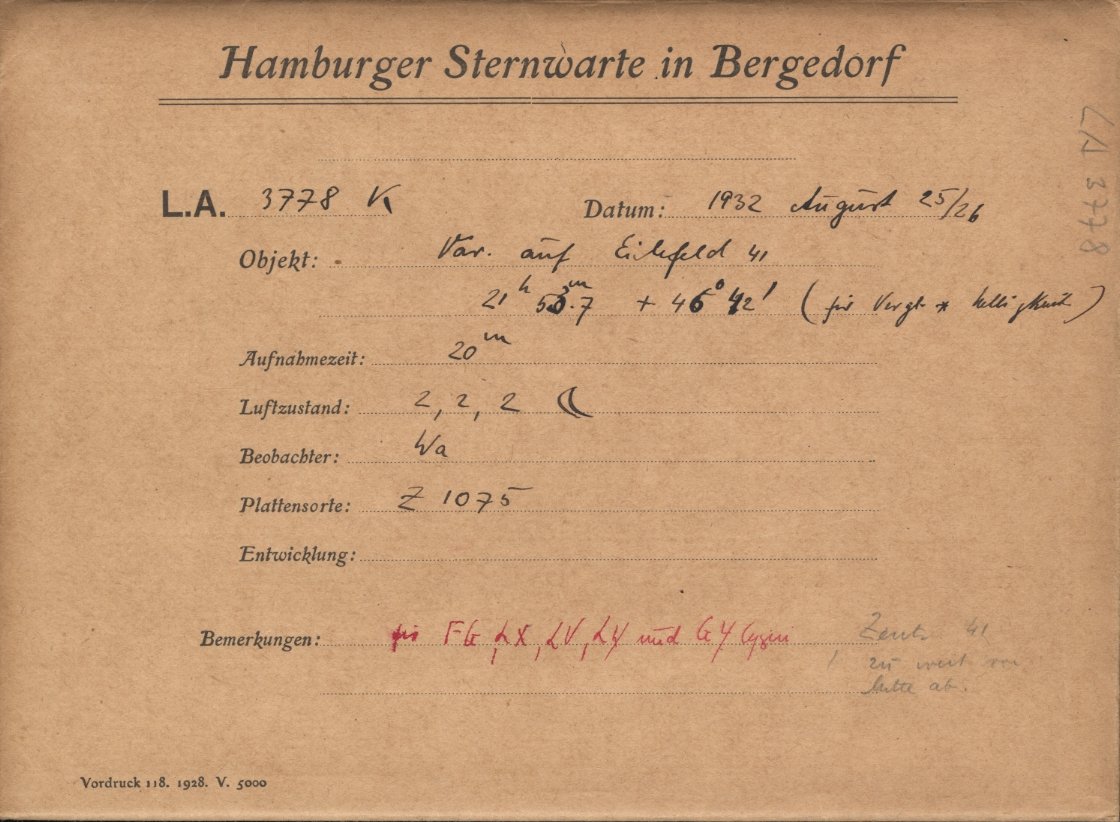 Hamburger Sternwarte in Bergedorf
LA 3778
L.A. 3778 K
Datum: 1932 August 25/26
Objekt: Var. auf Eilefeld 41
21 h 53 m.7 + 46° 42' (für Vergl * helligkeit)
Aufnahmezeit: 20 m
Luftzustand: 2, 2, 2 ☾
Beobachter: Wa
Plattensorte: Z 1075
Entwicklung:
Bemerkungen: für und Cygni
41
! zu weit von
Mitte ab.
Vordruck 118. 1928. V. 5000